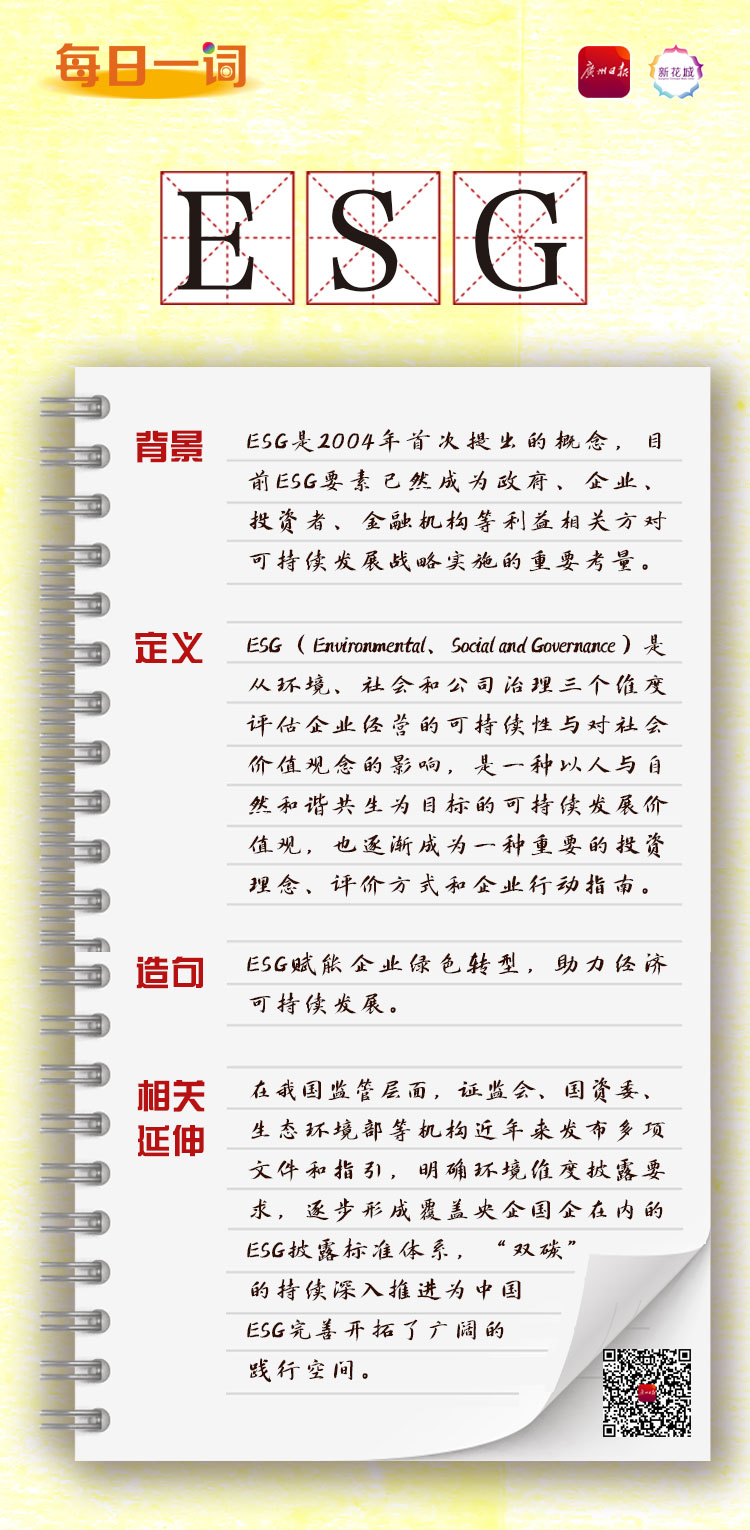 每日一词
广州日报
新花城
ESG
背景
ESG是2004年首次提出的概念，目
前ESG要素已然成为政府、企业、
投资者、金融机构等利益相关方对
可持续发展战略实施的重要考量。
定义
ESG（Environmental、Social and Governance）是
从环境、社会和公司治理三个维度
评估企业经营的可持续性与对社会
价值观念的影响，是一种以人与自
然和谐共生为目标的可持续发展价
值观，也逐渐成为一种重要的投资
理念、评价方式和企业行动指南。
造句
ESG赋能企业绿色转型，助力经济
可持续发展。
相关
延伸
在我国监管层面，证监会、国资委、
生态环境部等机构近年来发布多项
文件和指引，明确环境维度披露要
求，逐步形成覆盖央企国企在内的
ESG披露标准体系，“双碳”
的持续深入推进为中国
ESG完善开拓了广阔的
践行空间。